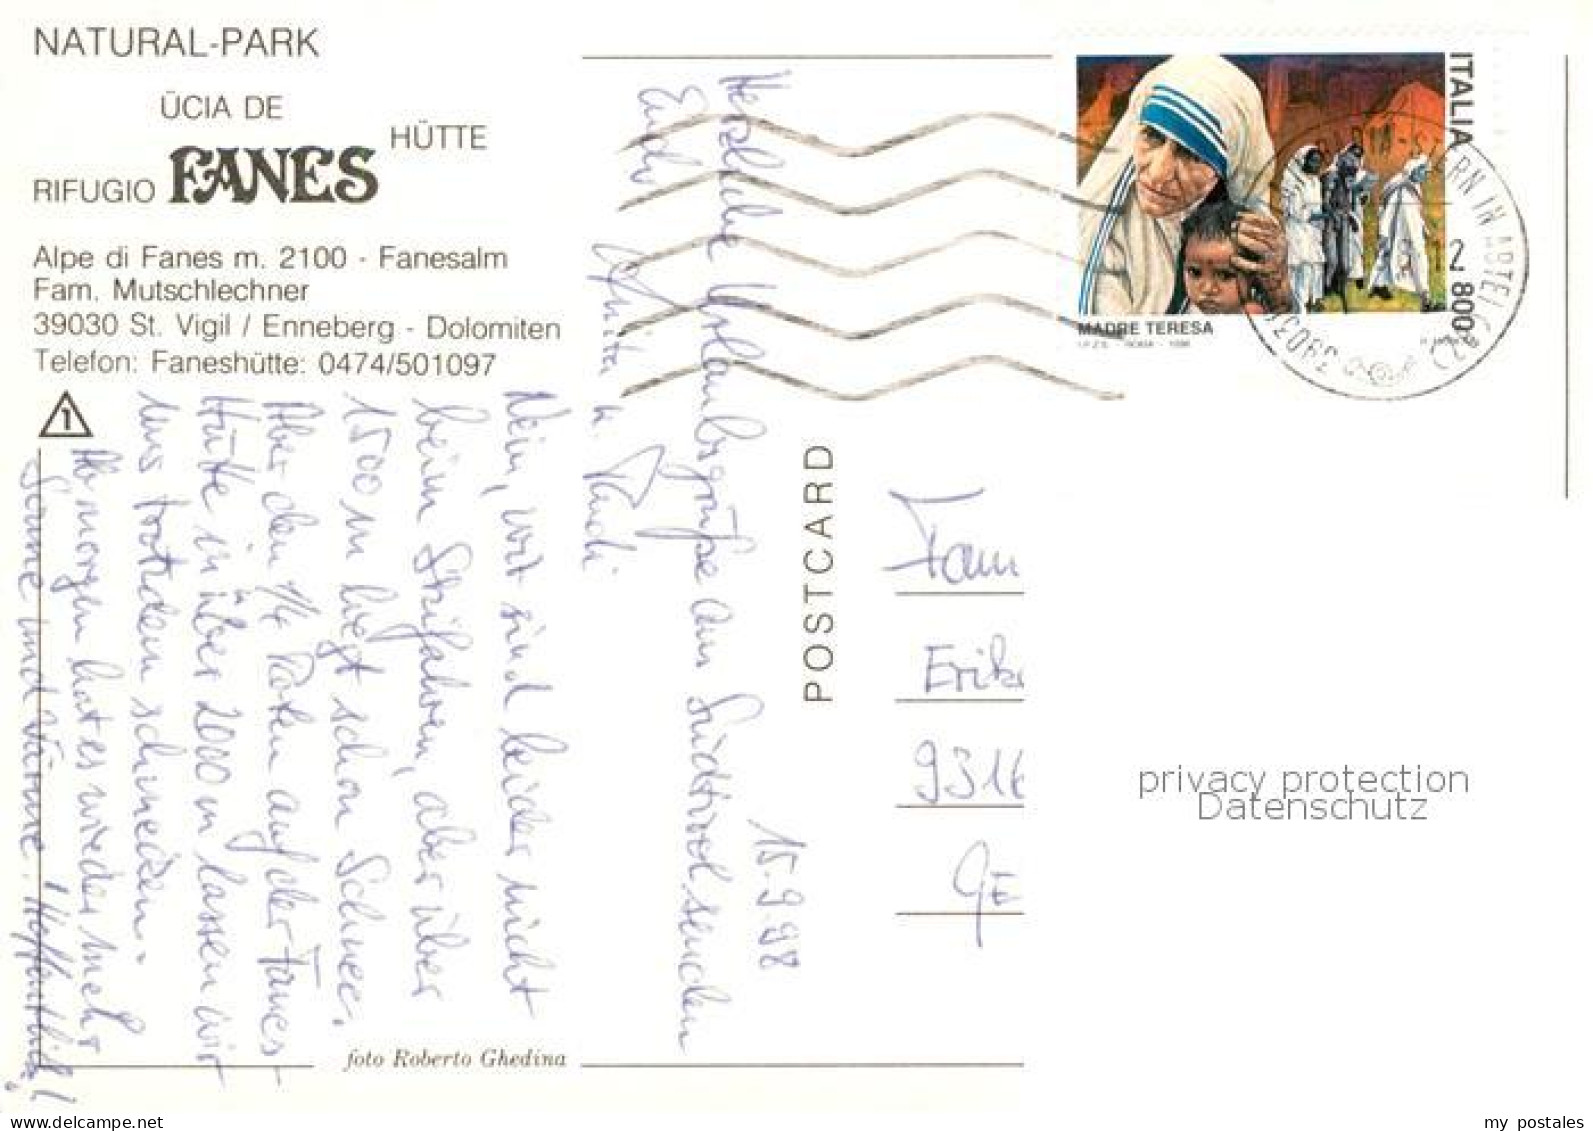 NATURAL-PARK
ÜCIA DE
HÜTTE
RIFUGIO FANES
Alpe di Fanes m. 2100 - Fanesalm
Fam. Mutschlechner
39030 St. Vigil / Enneberg - Dolomiten
Telefon: Faneshütte: 0474/501097
1
15.9.98
Herzliche Urlaubsgrüße aus Südtirol senden
Euch
Anita u. Rudi
Nein, wir sind leider nicht
beim Skifahren, aber über
1500 m liegt schon Schnee.
Aber den 1/4 Roten auf der Fanes
Hütte in über 2000 m lassen wir
uns trotzdem schmecken.
Ab morgen hat es wieder mehr
Sonne und Wärme. Hoffentlich!
foto Roberto Ghedina
POSTCARD
ITALIA
2 800
MADRE TERESA
I.P.Z.S. - ROMA - 1998
STERN IN ABTEI
39030
Fam
Erik
9316
privacy protection
Datenschutz
my postales